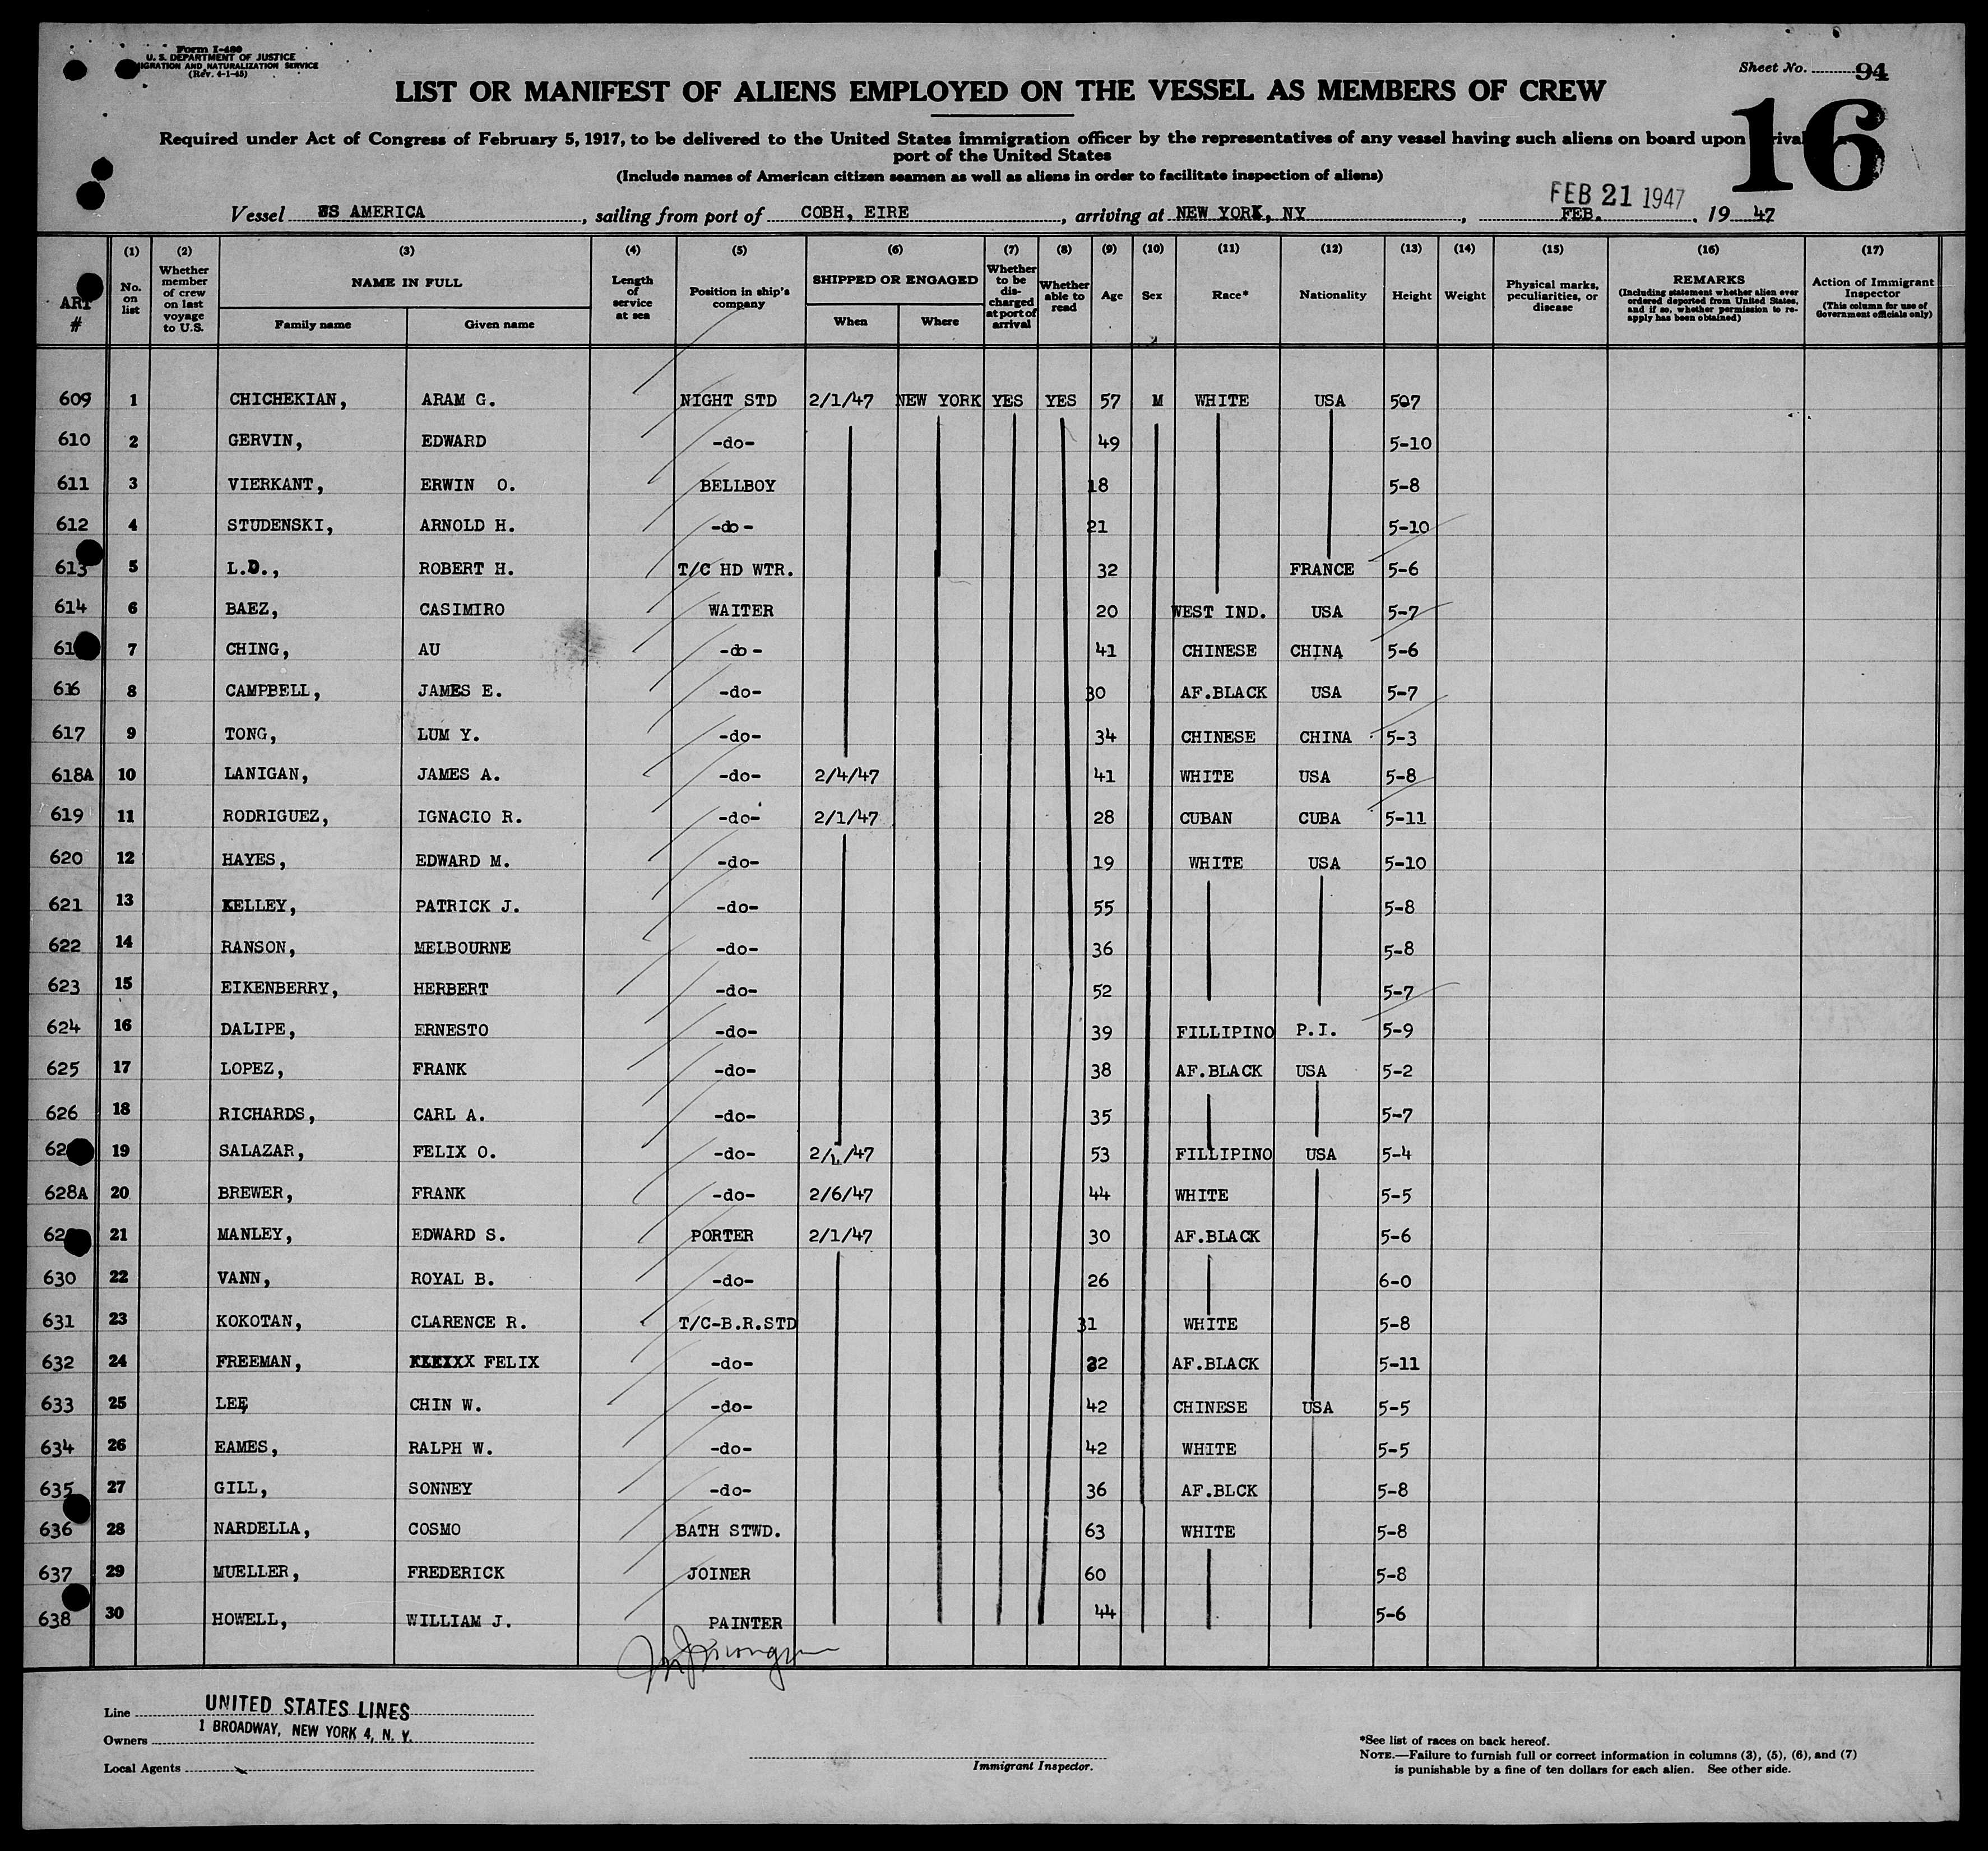 Form I-480
U. S. DEPARTMENT OF JUSTICE
IGRATION AND NATURALIZATION SERVICE
(Rev. 4-1-45)
Sheet No. 94
16
LIST OR MANIFEST OF ALIENS EMPLOYED ON THE VESSEL AS MEMBERS OF CREW
Required under Act of Congress of February 5, 1917, to be delivered to the United States immigration officer by the representatives of any vessel having such aliens on board upon rival
port of the United States
(Include names of American citizen seamen as well as aliens in order to facilitate inspection of aliens)
FEB 21 1947
Vessel SS AMERICA, sailing from port of COBH, EIRE, arriving at NEW YORK, NY, FEB. 19 47
(1) (2) (3) (4) (5) (6) (7) (8) (9) (10) (11) (12) (13) (14) (15) (16) (17)
ART # No. on list Whether member of crew on last voyage to U.S. NAME IN FULL Family name Given name Length of service at sea Position in ship's company SHIPPED OR ENGAGED When Where Whether to be discharged at port of arrival Whether able to read Age Sex Race* Nationality Height Weight Physical marks, peculiarities, or disease REMARKS (Including statement whether alien ever ordered deported from United States, and if so, whether permission to reapply has been obtained) Action of Immigrant Inspector (This column for use of Government officials only)
609 1 CHICHEKIAN, ARAM G. NIGHT STD 2/1/47 NEW YORK YES YES 57 M WHITE USA 507
610 2 GERVIN, EDWARD -do- 49 5-10
611 3 VIERKANT, ERWIN O. BELLBOY 18 5-8
612 4 STUDENSKI, ARNOLD H. -do- 21 5-10
613 5 L.D., ROBERT H. T/C HD WTR. 32 FRANCE 5-6
614 6 BAEZ, CASIMIRO WAITER 20 WEST IND. USA 5-7
61 7 CHING, AU -do- 41 CHINESE CHINA 5-6
616 8 CAMPBELL, JAMES E. -do- 30 AF.BLACK USA 5-7
617 9 TONG, LUM Y. -do- 34 CHINESE CHINA 5-3
618A 10 LANIGAN, JAMES A. -do- 2/4/47 41 WHITE USA 5-8
619 11 RODRIGUEZ, IGNACIO R. -do- 2/1/47 28 CUBAN CUBA 5-11
620 12 HAYES, EDWARD M. -do- 19 WHITE USA 5-10
621 13 KELLEY, PATRICK J. -do- 55 5-8
622 14 RANSON, MELBOURNE -do- 36 5-8
623 15 EIKENBERRY, HERBERT -do- 52 5-7
624 16 DALIPE, ERNESTO -do- 39 FILLIPINO P.I. 5-9
625 17 LOPEZ, FRANK -do- 38 AF.BLACK USA 5-2
626 18 RICHARDS, CARL A. -do- 35 5-7
62 19 SALAZAR, FELIX O. -do- 2/1/47 53 FILLIPINO USA 5-4
628A 20 BREWER, FRANK -do- 2/6/47 44 WHITE 5-5
62 21 MANLEY, EDWARD S. PORTER 2/1/47 30 AF.BLACK 5-6
630 22 VANN, ROYAL B. -do- 26 6-0
631 23 KOKOTAN, CLARENCE R. T/C-B.R.STD 31 WHITE 5-8
632 24 FREEMAN, FELIX -do- 32 AF.BLACK 5-11
633 25 LEE, CHIN W. -do- 42 CHINESE USA 5-5
634 26 EAMES, RALPH W. -do- 42 WHITE 5-5
635 27 GILL, SONNEY -do- 36 AF.BLCK 5-8
636 28 NARDELLA, COSMO BATH STWD. 63 WHITE 5-8
637 29 MUELLER, FREDERICK JOINER 60 5-8
638 30 HOWELL, WILLIAM J. PAINTER 44 5-6
Line UNITED STATES LINES
Owners 1 BROADWAY, NEW YORK 4, N. Y.
Local Agents
Immigrant Inspector.
*See list of races on back hereof.
NOTE.—Failure to furnish full or correct information in columns (3), (5), (6), and (7)
is punishable by a fine of ten dollars for each alien. See other side.